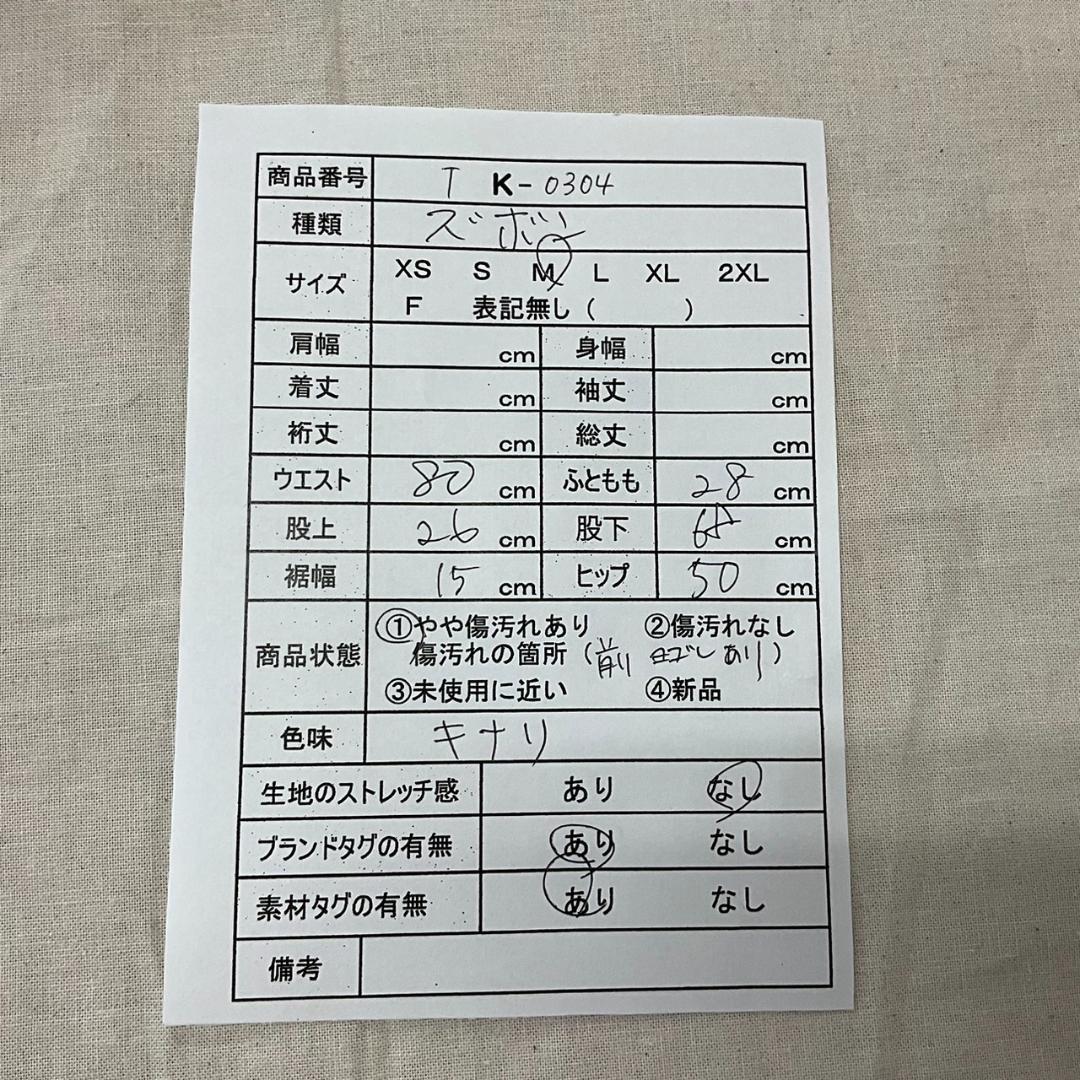 商品番号 T K-0304
種類 ズボン
サイズ XS S M L XL 2XL
F 表記無し ( )
肩幅 cm 身幅 cm
着丈 cm 袖丈 cm
裄丈 cm 総丈 cm
ウエスト 80 cm ふともも 28 cm
股上 26 cm 股下 68 cm
裾幅 15 cm ヒップ 50 cm
商品状態 ①やや傷汚れあり ②傷汚れなし
傷汚れの箇所 (前り あり)
③未使用に近い ④新品
色味 キナリ
生地のストレッチ感 あり なし
ブランドタグの有無 あり なし
素材タグの有無 あり なし
備考